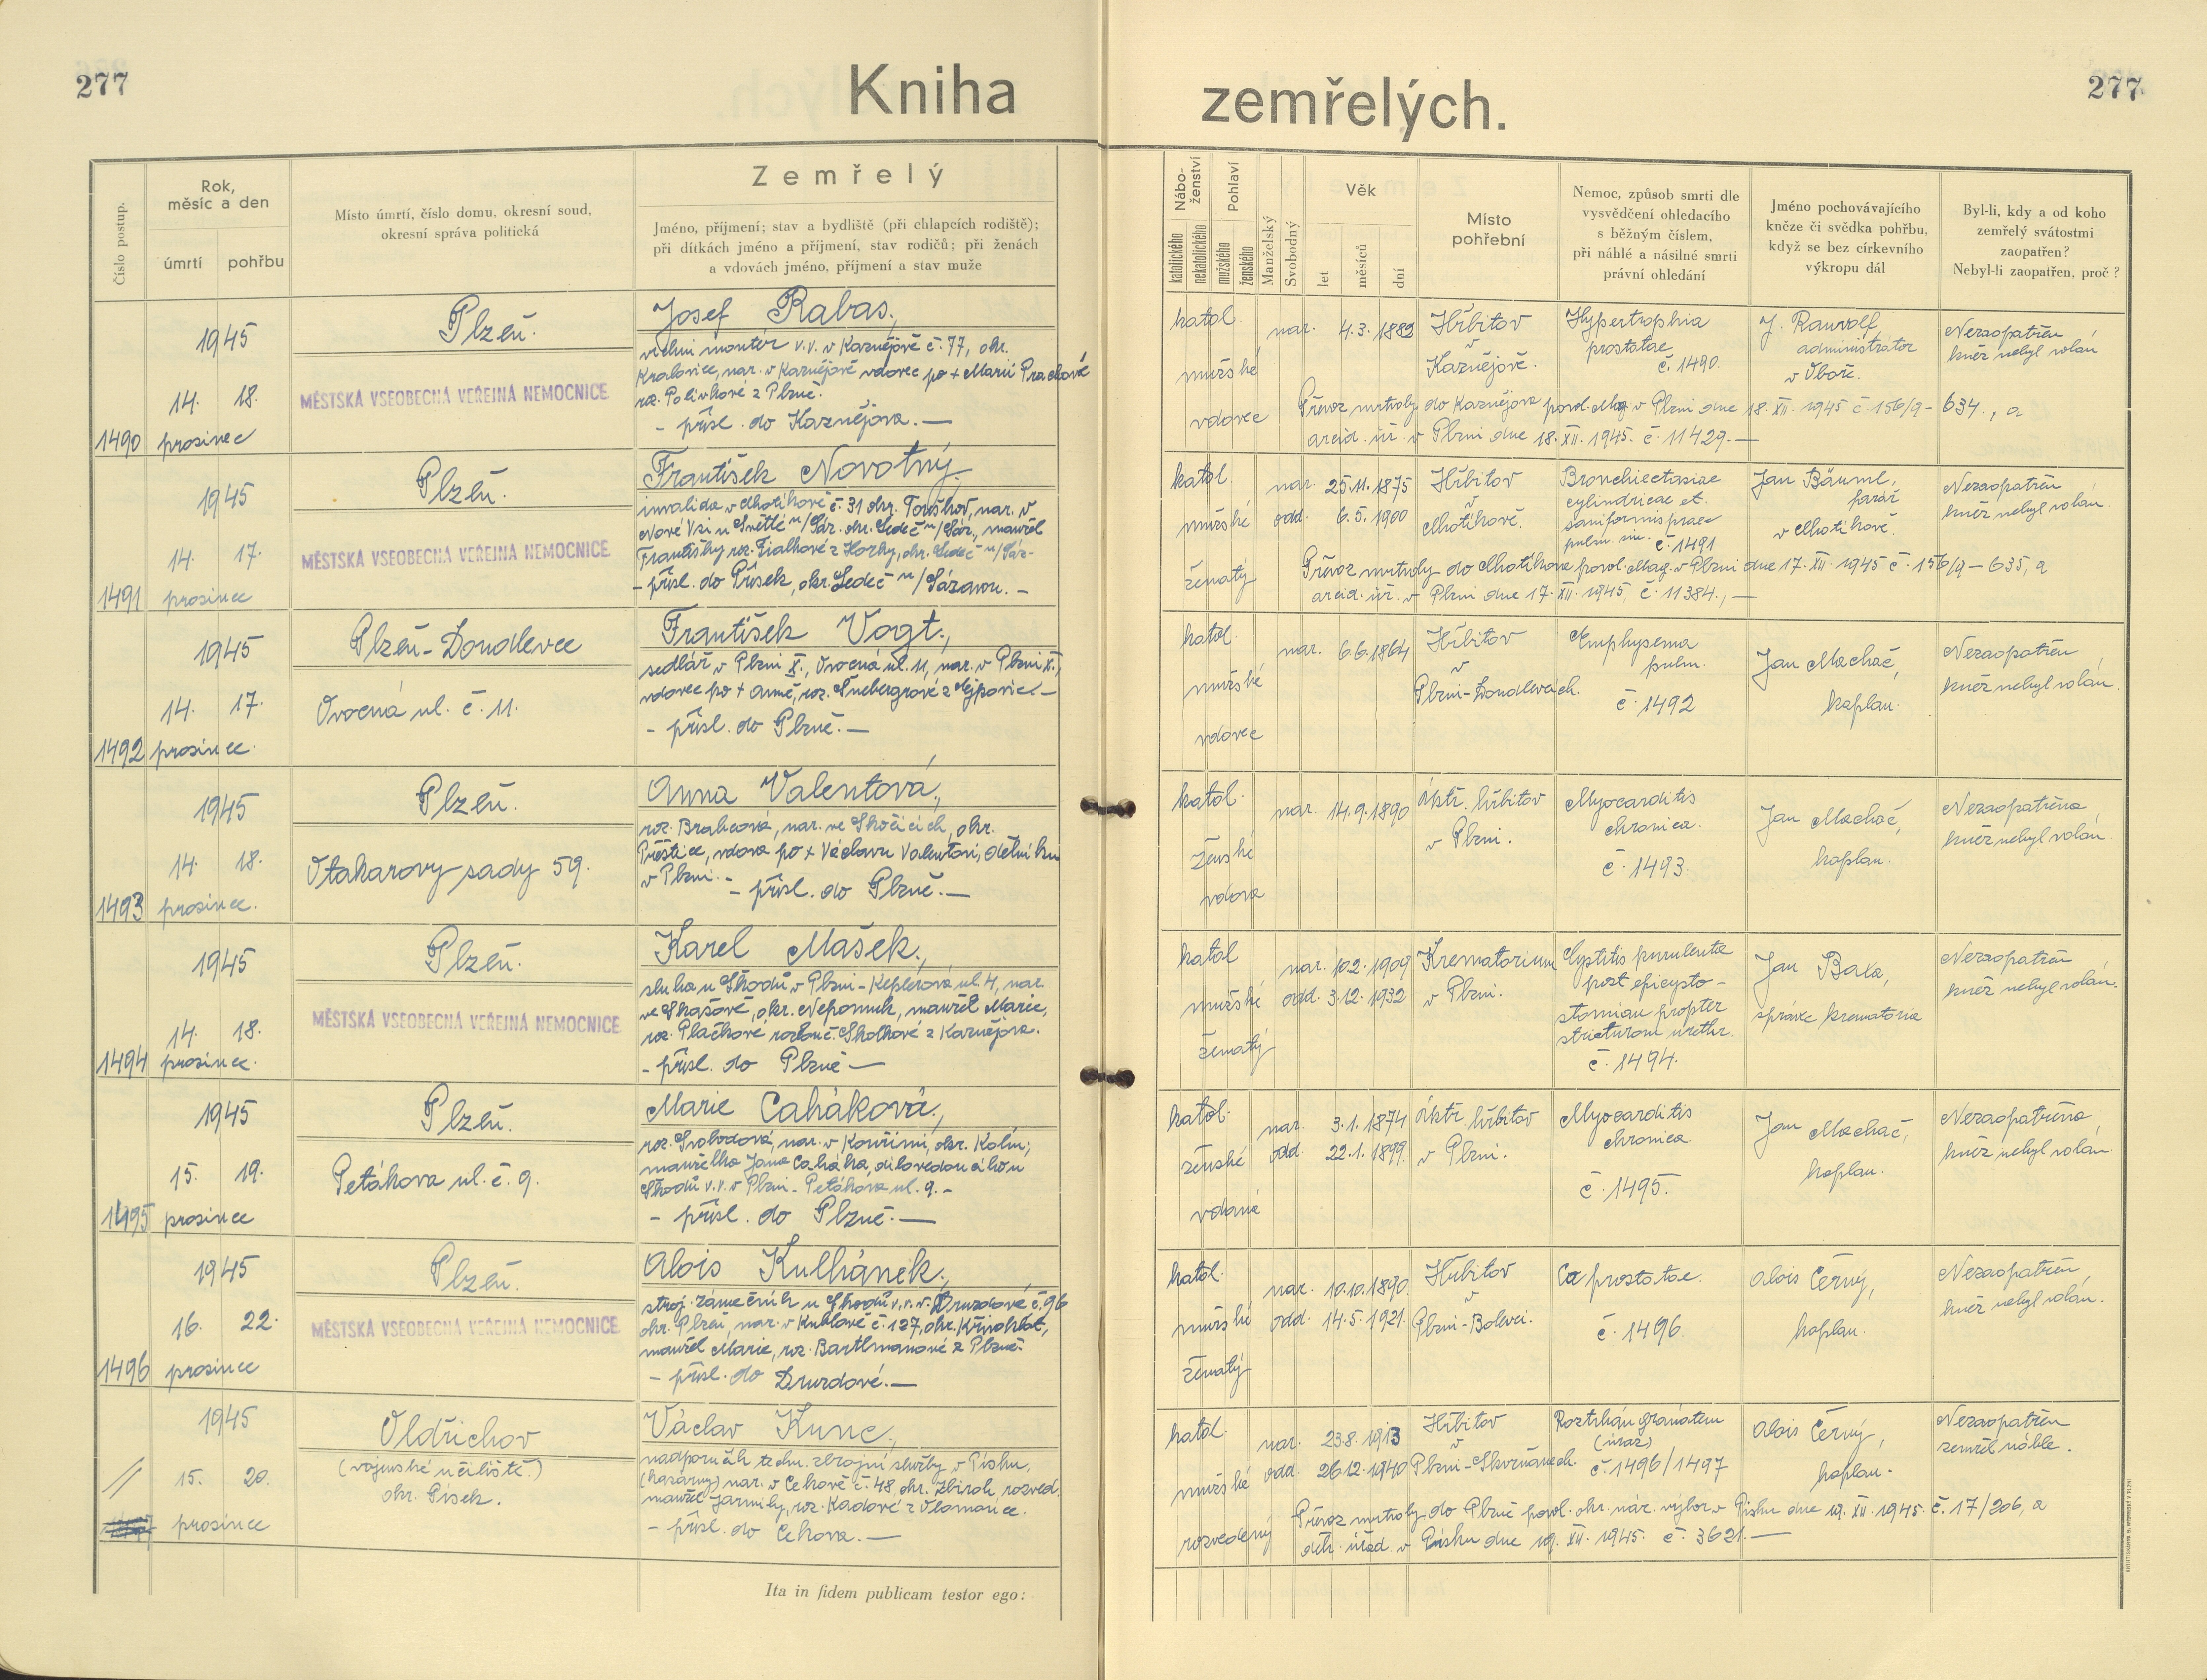 277
Kniha
zemřelých.
277
Číslo postup.
Rok,
měsíc a den
úmrtí
pohřbu
Místo úmrtí, číslo domu, okresní soud,
okresní správa politická
Zemřelý
Jméno, příjmení; stav a bydliště (při chlapcích rodiště);
při dítkách jméno a příjmení, stav rodičů; při ženách
a vdovách jméno, příjmení a stav muže
Nábo-
ženství
katolického
nekatolického
Pohlaví
mužského
ženského
Manželský
Svobodný
Věk
let
měsíců
dní
Místo
pohřební
Nemoc, způsob smrti dle
vysvědčení ohledacího
s běžným číslem,
při náhlé a násilné smrti
právní ohledání
Jméno pochovávajícího
kněze či svědka pohřbu,
když se bez církevního
výkropu dál
Byl-li, kdy a od koho
zemřelý svátostmi
zaopatřen?
Nebyl-li zaopatřen, proč?
1490
1945
14. 18.
prosinec
Plzeň.
MĚSTSKÁ VŠEOBECNÁ VEŘEJNÁ NEMOCNICE
Josef Rabas,
vrchní montér v.v. v Kaznějově č. 77, okr.
Kralovice, nar. v Kaznějově vdovec po + Marii Prachové
roz. Polívkové z Plzně.
- přísl. do Kaznějova.—
katol.
mužské
vdovec
nar. 4.3.1889
Hřbitov
v
Kaznějově.
Hypertrophia
prostatae
č. 1490.
J. Rauvolf,
administrátor
v Oboře.
Nezaopatřen
kněz nebyl volán
Převoz mrtvoly do Kaznějova povol. Mag. v Plzni dne 18. XII. 1945 č. 156/9-634., a
arcid. úř. v Plzni dne 18. XII. 1945. č. 11429.—
1491
1945
14. 17.
prosinec
Plzeň.
MĚSTSKÁ VŠEOBECNÁ VEŘEJNÁ NEMOCNICE
František Novotný.
invalida v Chotíkově č. 31 okr. Touškov, nar. v
Nové Vsi u Světlé n/Sáz. okr. Ledeč n/Sáz., manžel
Františky roz. Fialkové z Horky, okr. Ledeč n/Sáz-
- přísl. do Přísek, okr. Ledeč n/Sázavou. -
katol.
mužské
ženatý
nar. 25.11.1875
odd. 6.5.1900
Hřbitov
v
Chotíkově.
Bronchiectasiae
cylindricae et
č. 1491
Jan Bäuml,
farář
v Chotíkově.
Nezaopatřen
kněz nebyl volán.
Převoz mrtvoly do Chotíkova povol. Mag. v Plzni dne 17. XII. 1945 č. 156/9-635, a
arcid. úř. v Plzni dne 17. XII. 1945, č. 11384.,—
1492
1945
14. 17.
prosinec.
Plzeň-Doudlevce
Ovocná ul. č. 11.
František Vogt.,
sedlář v Plzni X., Ovocná ul. 11, nar. v Plzni X.,
vdovec po + Anně, roz. Šnebergrové z Ejpovic.—
- přísl. do Plzně.—
katol.
mužské
vdovec
nar. 6.6.1864
Hřbitov
v
Plzni-Doudlevcích.
Emphysema
pulm.
č. 1492
Jan Machač,
kaplan.
Nezaopatřen
kněz nebyl volán.
1493
1945
14. 18.
prosinec.
Plzeň.
Otakarovy sady 59.
Anna Valentová,
roz. Brabcová, nar. ve Skočicích, okr.
Přeštice, vdova po + Václavu Valentovi, dělníku
v Plzni.-
- přísl. do Plzně.—
katol.
ženské
vdova
nar. 14.9.1890
Ústř. hřbitov
v Plzni.
Myocarditis
chronica.
č. 1493.
Jan Machač,
kaplan.
Nezaopatřena
kněz nebyl volán.
1494
1945
14. 18.
prosinec.
Plzeň.
MĚSTSKÁ VŠEOBECNÁ VEŘEJNÁ NEMOCNICE
Karel Mašek,
sluha u Škodů v Plzni-Keplerova ul. 4, nar.
ve Skašově, okr. Nepomuk, manžel Marie,
roz. Plačkové rozlouč. Skolkové z Kaznějova.
- přísl. do Plzně—
katol
mužské
ženatý
nar. 10.2.1909
odd. 3.12.1932
Krematorium
v Plzni.
Cystitis purulenta
post epicysto-
stomiam propter
stricturam urethr.
č. 1494.
Jan Baxa,
správce krematoria
Nezaopatřen
kněz nebyl volán.
1495
1945
15. 19.
prosinec
Plzeň.
Petákova ul. č. 9.
Marie Caháková,
roz. Svobodová, nar. v Kouřimi, okr. Kolín;
manželka Jana Caháka, dílovedoucího u
Škodů v.v. v Plzni-Petákova ul. 9.-
- přísl. do Plzně.—
katol.
ženské
vdaná
nar. 3.1.1874
odd. 22.1.1899.
Ústř. hřbitov
v Plzni.
Myocarditis
chronica
č. 1495.
Jan Machač,
kaplan.
Nezaopatřena
kněz nebyl volán.
1496
1945
16. 22.
prosinec
Plzeň.
MĚSTSKÁ VŠEOBECNÁ VEŘEJNÁ NEMOCNICE
Alois Kulhánek,
stroj. zámečník u Škodů v.v. v Druzdově č. 96
okr. Plzeň, nar. v Kublově č. 127, okr. Křivoklát,
manžel Marie, roz. Bartlmanové z Plzně.
- přísl. do Druzdové.—
katol.
mužské
ženatý
nar. 10.10.1890.
odd. 14.5.1921.
Hřbitov
v
Plzni-Bolevci.
Ca prostatae.
č. 1496
Alois Černý,
kaplan.
Nezaopatřen
kněz nebyl volán.
//
1945
15. 20.
prosinec
Oldřichov
(vojenské učiliště.)
okr. Písek.
Václav Kunc,
nadporučík techn. zbrojní služby v Písku,
(kasárny) nar. v Cekově č. 48 okr. Zbiroh, rozved.
manžel Jarmily, roz. Kadové z Olomouce.
- přísl. do Cekova.—
katol.
mužské
rozvedený
nar. 23.8.1913
odd. 26.12.1940
Hřbitov
v
Plzni-Skvrňanech.
Roztrhán granátem
(úraz)
č. 1496/1497
Alois Černý,
kaplan.
Nezaopatřen
zemřel náhle.
Převoz mrtvoly do Plzně povol. okr. nár. výbor v Písku dne 19. XII. 1945. č. 17/206, a
děk. úřad. v Písku dne 19. XII. 1945. č. 3621.—
Ita in fidem publicam testor ego: